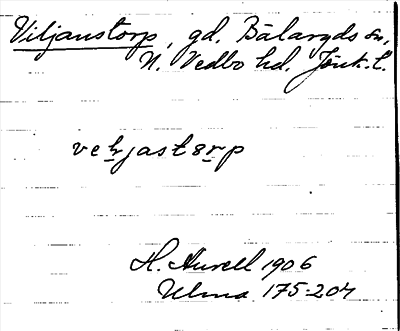 Viljanstorp, gd. Bälaryds sn,
N. Vedbo hd. Jönk. l.
H. Aurell 1906
Ulma 175:204